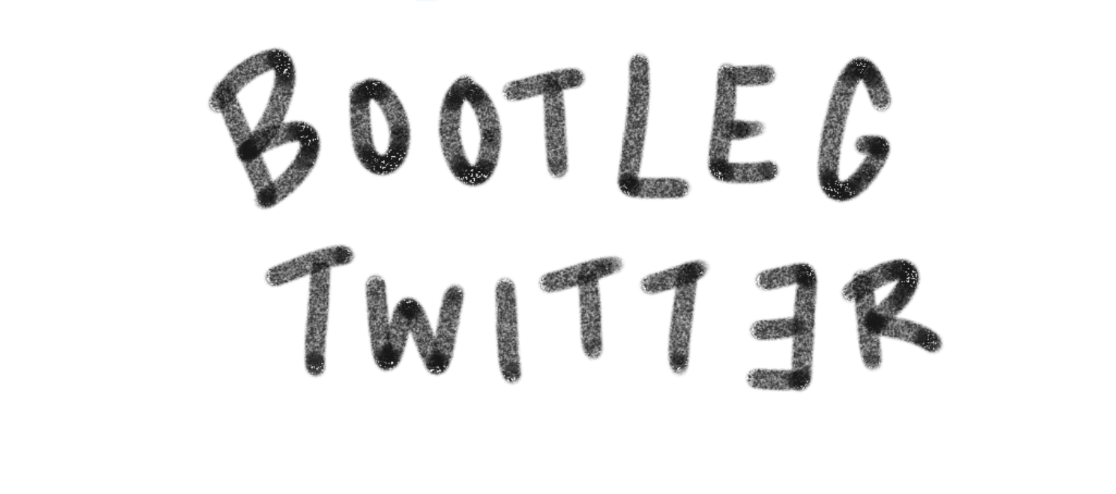 BOOTLEG
TWITTƎR